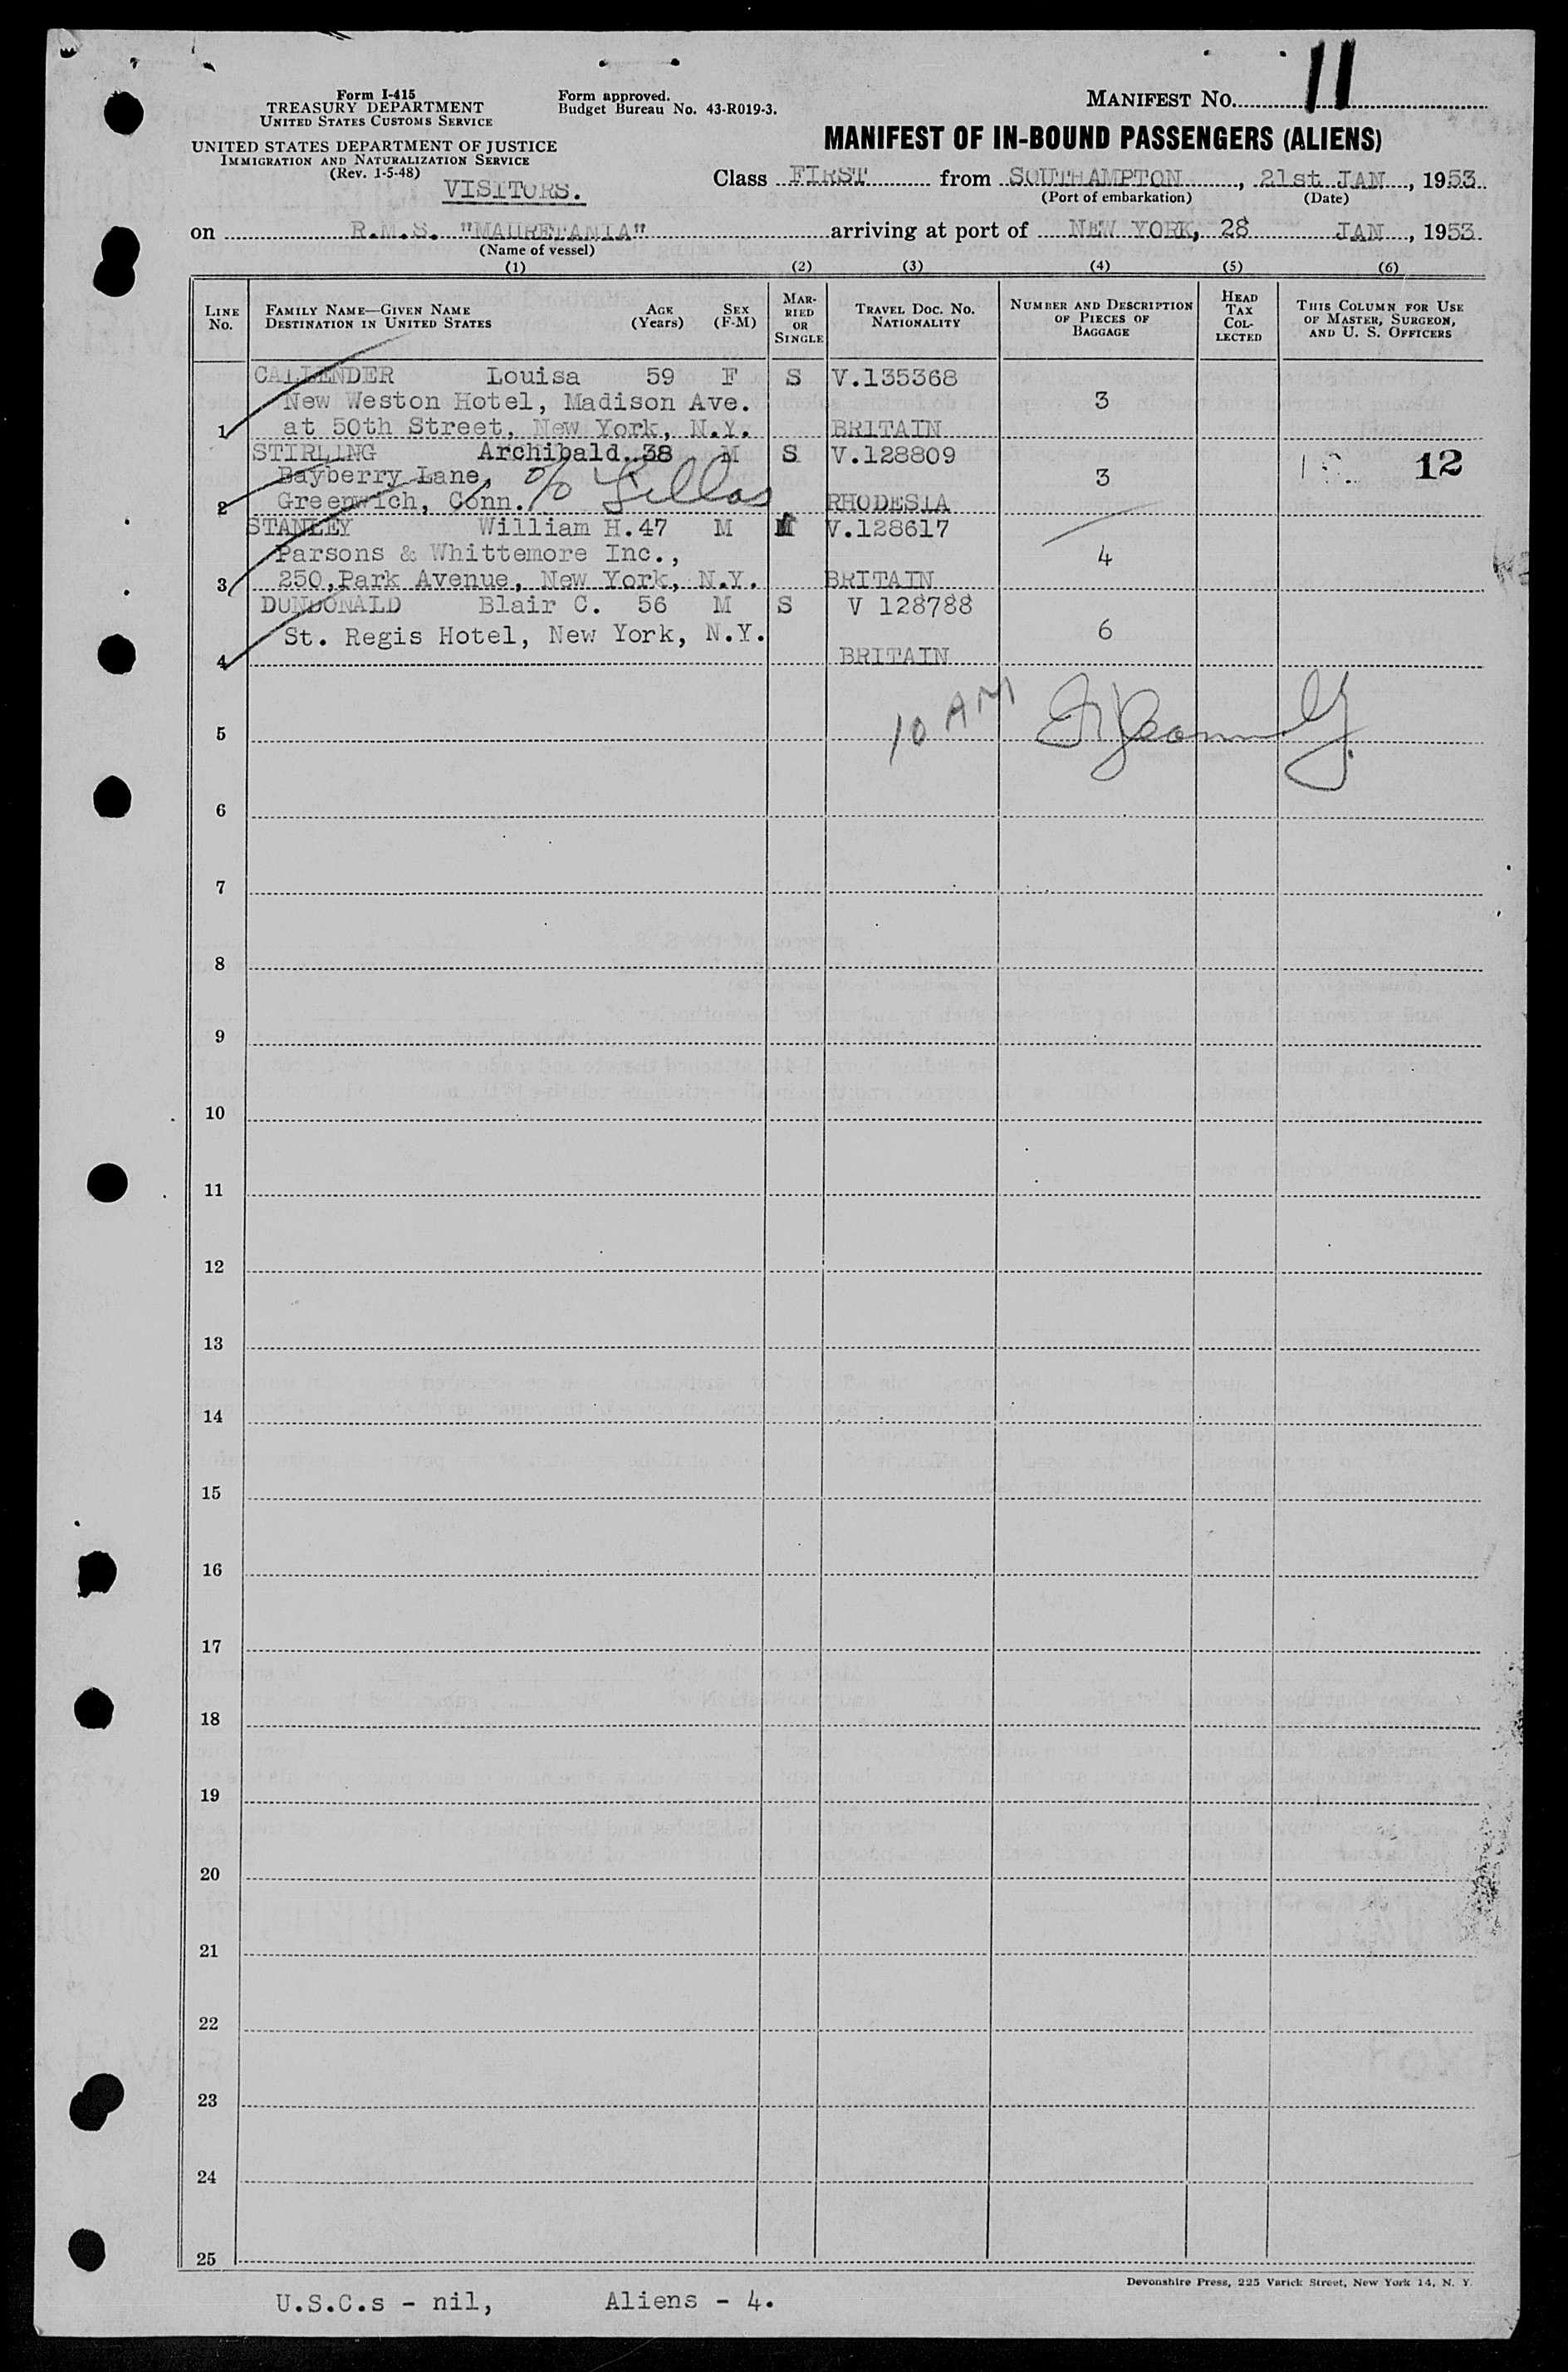 11
Form I-415
TREASURY DEPARTMENT
UNITED STATES CUSTOMS SERVICE
Form approved.
Budget Bureau No. 43-R019-3.
MANIFEST NO.
UNITED STATES DEPARTMENT OF JUSTICE
IMMIGRATION AND NATURALIZATION SERVICE
(Rev. 1-5-48)
VISITORS.
MANIFEST OF IN-BOUND PASSENGERS (ALIENS)
Class FIRST from SOUTHAMPTON, 21st JAN, 1953
(Port of embarkation) (Date)
on R.M.S. "MAURETANIA" arriving at port of NEW YORK, 28 JAN, 1953
(Name of vessel)
(1) (2) (3) (4) (5) (6)
LINE No. FAMILY NAME—GIVEN NAME DESTINATION IN UNITED STATES AGE (Years) SEX (F-M) MARRIED OR SINGLE TRAVEL DOC. NO. NATIONALITY NUMBER AND DESCRIPTION OF PIECES OF BAGGAGE HEAD TAX COLLECTED THIS COLUMN FOR USE OF MASTER, SURGEON, AND U. S. OFFICERS
CALLENDER Louisa 59 F S V.135368
New Weston Hotel, Madison Ave. 3
1 at 50th Street, New York, N.Y. BRITAIN
STIRLING Archibald. 38 M S V.128809 12
Bayberry Lane, 3
2 Greenwich, Conn. RHODESIA
STANLEY William H. 47 M M V.128617
Parsons & Whittemore Inc., 4
3 250,Park Avenue, New York, N.Y. BRITAIN
DUNDONALD Blair C. 56 M S V 128788
St. Regis Hotel, New York, N.Y. 6
4 BRITAIN
10 AM
5
6
7
8
9
10
11
12
13
14
15
16
17
18
19
20
21
22
23
24
25
Devonshire Press, 225 Varick Street, New York 14, N. Y.
U.S.C.s - nil, Aliens - 4.